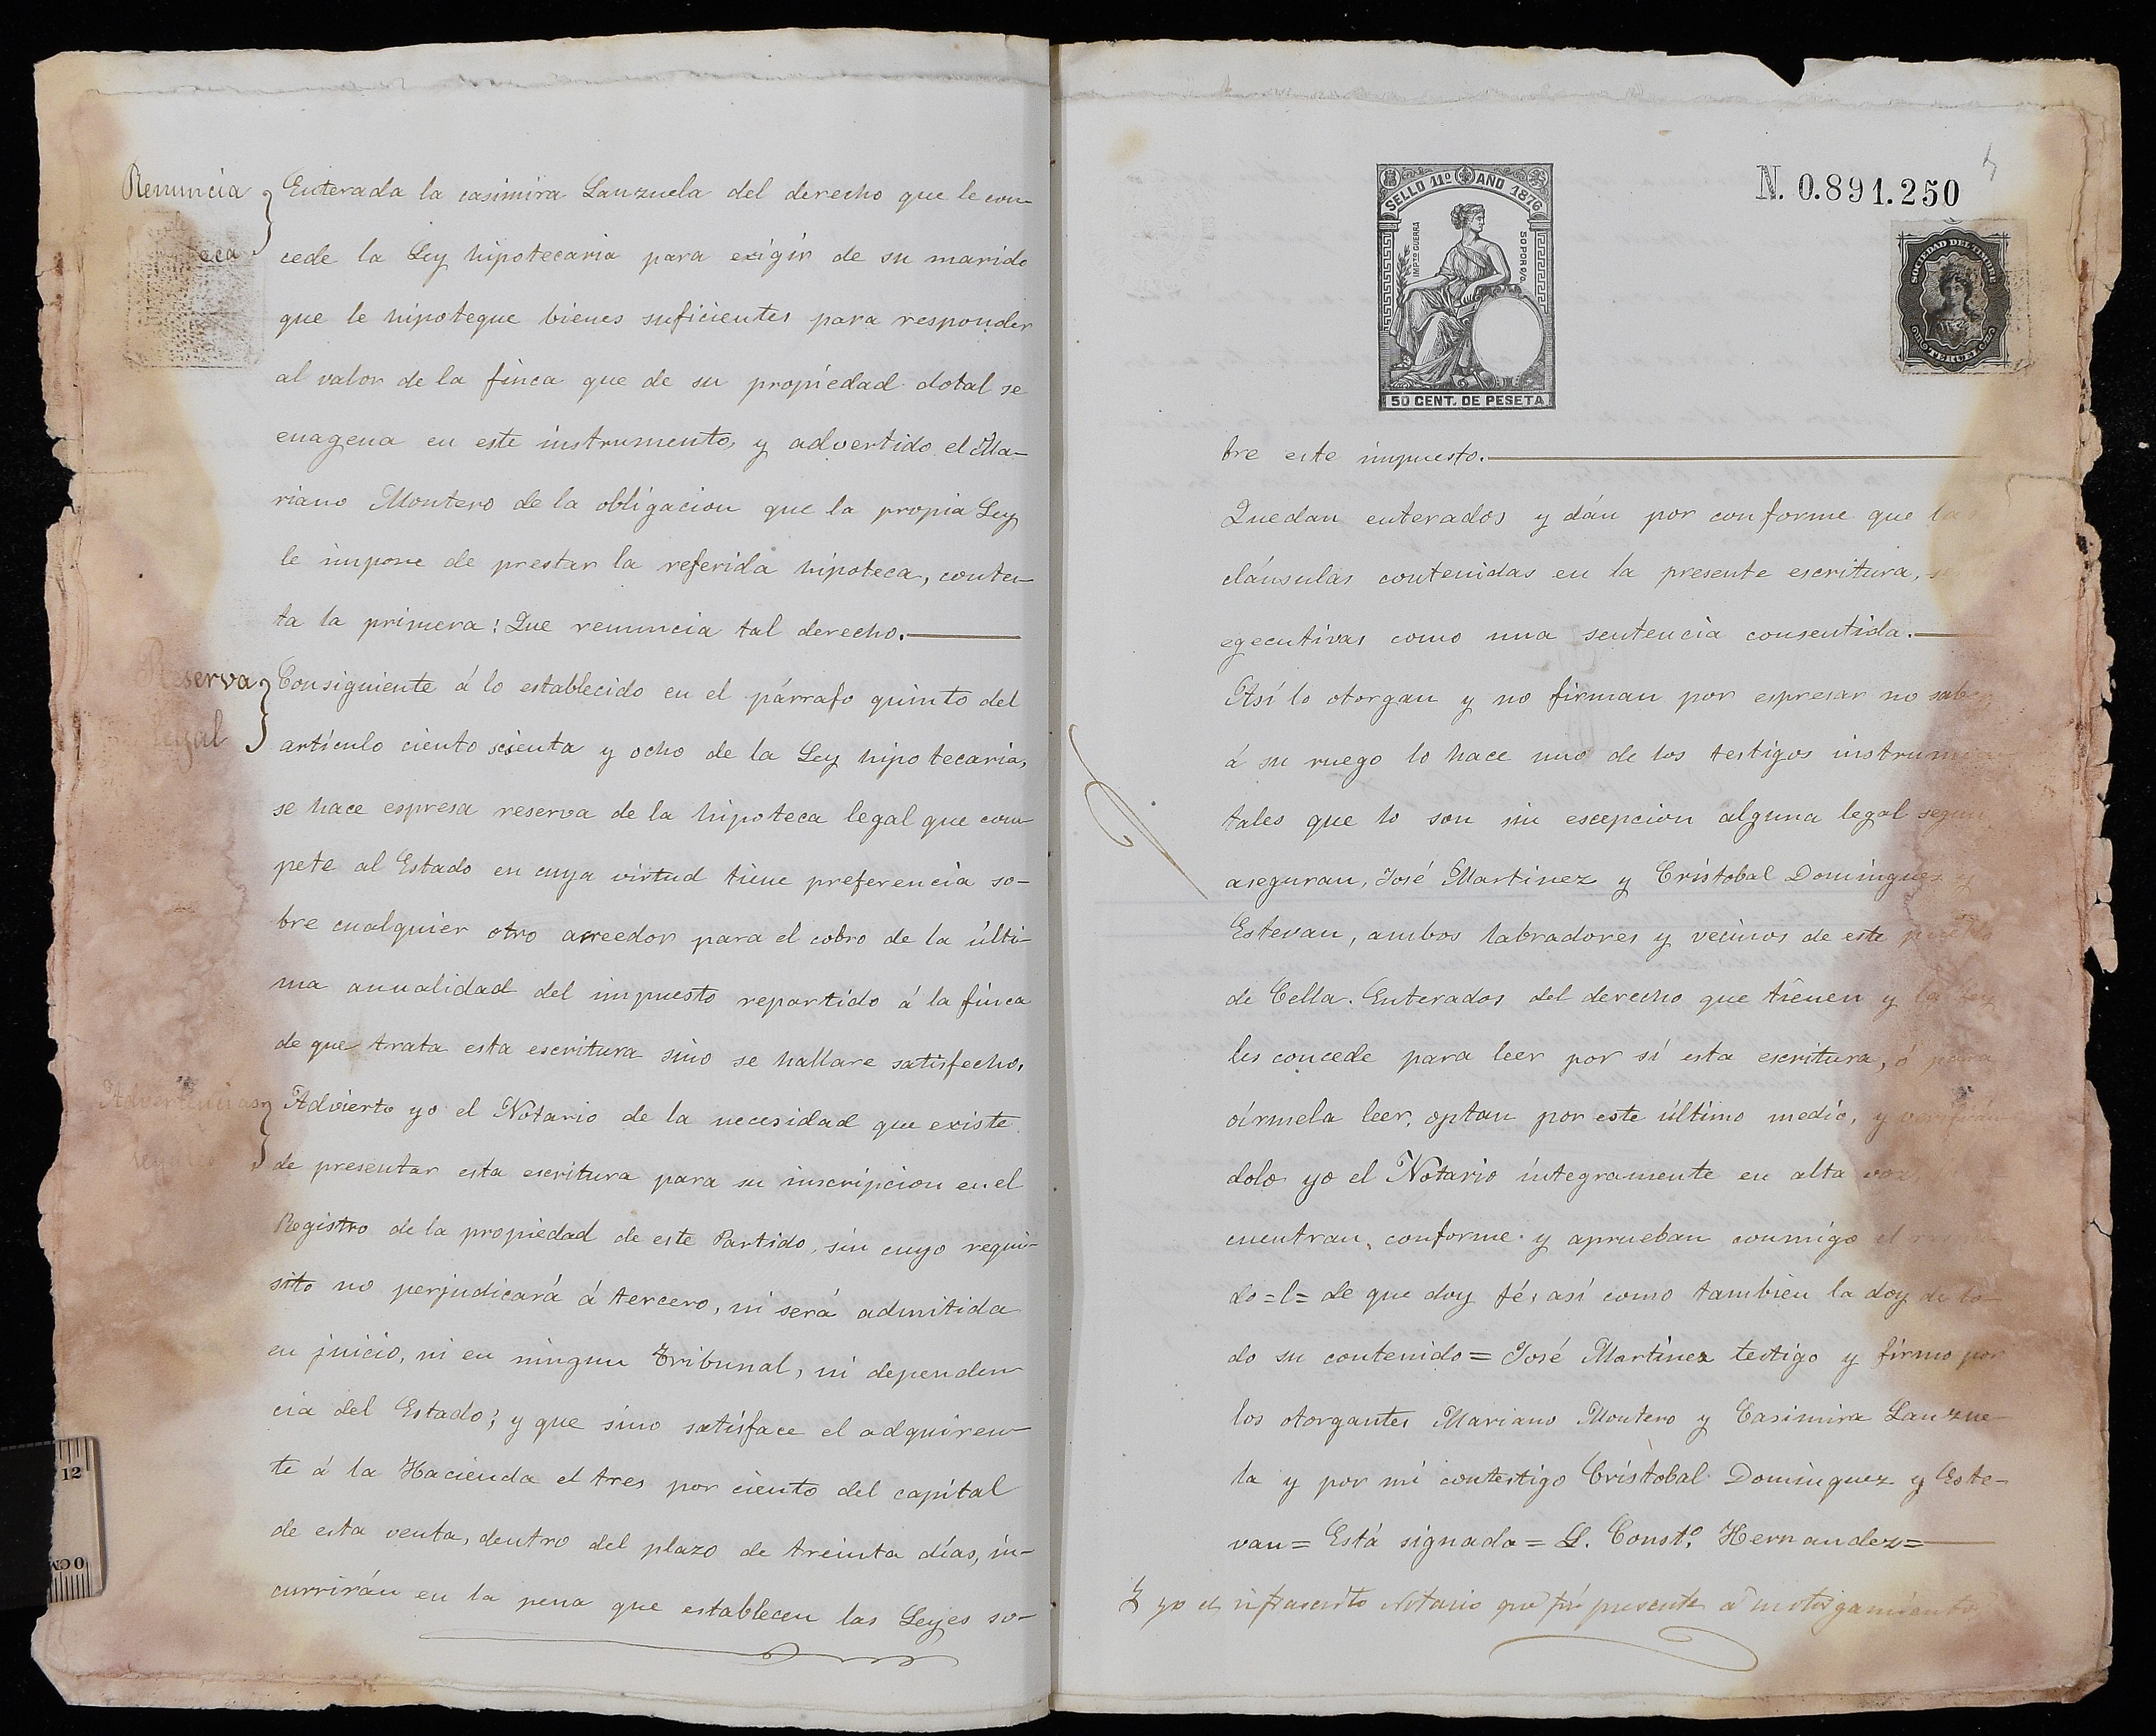 Renuncia
teca
Enterada la casimira Lanzuela del derecho que le con-
cede la Ley hipotecaria para exigir de su marido
que le hipoteque bienes suficientes para responder
al valor de la finca que de su propiedad dotal se
enagena en este instrumento, y advertido el Ma-
riano Montero de la obligacion que la propia Ley
le impone de prestar la referida hipoteca, contes-
ta la primera: Que renuncia tal derecho.
Reserva
legal
Consiguiente á lo establecido en el párrafo quinto del
artículo ciento sesenta y ocho de la Ley hipotecaria,
se hace espresa reserva de la hipoteca legal que com-
pete al Estado en cuya virtud tiene preferencia so-
bre cualquier otro acreedor para el cobro de la últi-
ma anualidad del impuesto repartido á la finca
de que trata esta escritura sino se hallare satisfecho.
Advertencias
legales
Advierto yo el Notario de la necesidad que existe
de presentar esta escritura para su inscripcion en el
Registro de la propiedad de este Partido, sin cuyo requi-
sito no perjudicará á tercero, ni será admitida
en juicio, ni en ningun Tribunal, ni dependen-
cia del Estado; y que sino satisface el adquiren-
te á la Hacienda el tres por ciento del capital
de esta venta, dentro del plazo de treinta días, in-
currirán en la pena que establecen las Leyes so-
12
SELLO 11º AÑO 1876
IMPTO GUERRA
50 POR 0/0
50 CENT. DE PESETA
N. 0.891.250
SOCIEDAD DEL TIMBRE
TERUEL
bre este impuesto.
Quedan enterados y dán por conforme que las
cláusulas contenidas en la presente escritura, se
egecutivas como una sentencia consentida.
Así lo otorgan y no firman por espresar no saber
á su ruego lo hace uno de los testigos instrumen
tales que lo son sin escepcion alguna legal segun
aseguran, José Martinez y Cristobal Dominguez y
Estevan, ambos labradores y vecinos de este pueblo
de Cella. Enterados del derecho que tienen y la Ley
les concede para leer por sí esta escritura, ó para
oírmela leer, optan por este último medio, y verificán
dolo yo el Notario íntegramente en alta voz,
cuentran conforme y aprueban conmigo el
do =l= de que doy fé, así como tambien la doy de to-
do su contenido = José Martinez testigo y firmo por
los otorgantes Mariano Montero y Casimira Lanzue-
la y por mi contestigo Cristobal Dominguez y Este-
van = Está signada = L. Const.º Hernandez =
Y yo el infrascrito Notario que fui presente á su otorgamiento